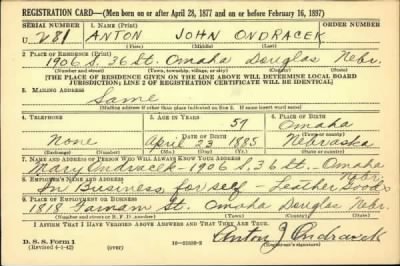 REGISTRATION CARD—(Men born on or after April 28, 1877 and on or before February 16, 1897)
SERIAL NUMBER 1. NAME (Print) ORDER NUMBER
U281 ANTON JOHN ONDRACEK
(First) (Middle) (Last)
2. PLACE OF RESIDENCE (Print)
1906 S. 36 St. Omaha Douglas Nebr.
(Number and street) (Town, township, village, or city) (County) (State)
[THE PLACE OF RESIDENCE GIVEN ON THE LINE ABOVE WILL DETERMINE LOCAL BOARD
JURISDICTION; LINE 2 OF REGISTRATION CERTIFICATE WILL BE IDENTICAL]
3. MAILING ADDRESS
Same
[Mailing address if other than place indicated on line 2. If same insert word same]
4. TELEPHONE 5. AGE IN YEARS 6. PLACE OF BIRTH
57 Omaha
DATE OF BIRTH (Town or county)
None April 23 1885 Nebraska
(Exchange) (Number) (Mo.) (Day) (Yr.) (State or country)
7. NAME AND ADDRESS OF PERSON WHO WILL ALWAYS KNOW YOUR ADDRESS Nebr.
Mary Ondracek-1906 S. 36 St. Omaha
8. EMPLOYER'S NAME AND ADDRESS
In Business for self - Leather Goods
9. PLACE OF EMPLOYMENT OR BUSINESS
1818 Farnam St. Omaha Douglas Nebr.
(Number and street or R. F. D. number) (Town) (County) (State)
I AFFIRM THAT I HAVE VERIFIED ABOVE ANSWERS AND THAT THEY ARE TRUE.
D. S. S. Form 1
(Revised 4-1-42) (over) Anton J Ondracek
(Registrant's signature)